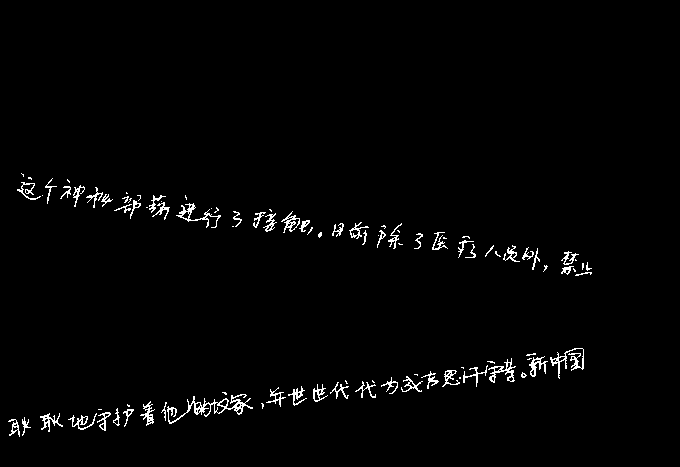 这个神秘部落进行了接触。目前除了医疗人员外，禁止
耿耿地守护着他的坟冢，并世世代代为成吉思汗守墓。新中国